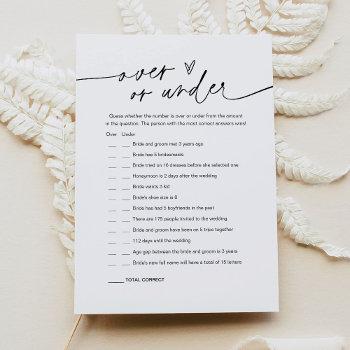 over ♡
or under
Guess whether the number is over or under from the amount
in the question. The person with the most correct answers wins!
Over Under
___ ___ Bride and groom met 3 years ago
___ ___ Bride has 5 bridesmaids
___ ___ Bride tried on 16 dresses before she selected one
___ ___ Honeymoon is 2 days after the wedding
___ ___ Bride wants 3 kid
___ ___ Bride's shoe size is 8
___ ___ Bride has had 5 boyfriends in the past
___ ___ There are 175 people invited to the wedding
___ ___ Bride and groom have been on 5 trips together
___ ___ 112 days until the wedding
___ ___ Age gap between the bride and groom is 3 years
___ ___ Bride's new full name will have a total of 15 letters
_____ TOTAL CORRECT